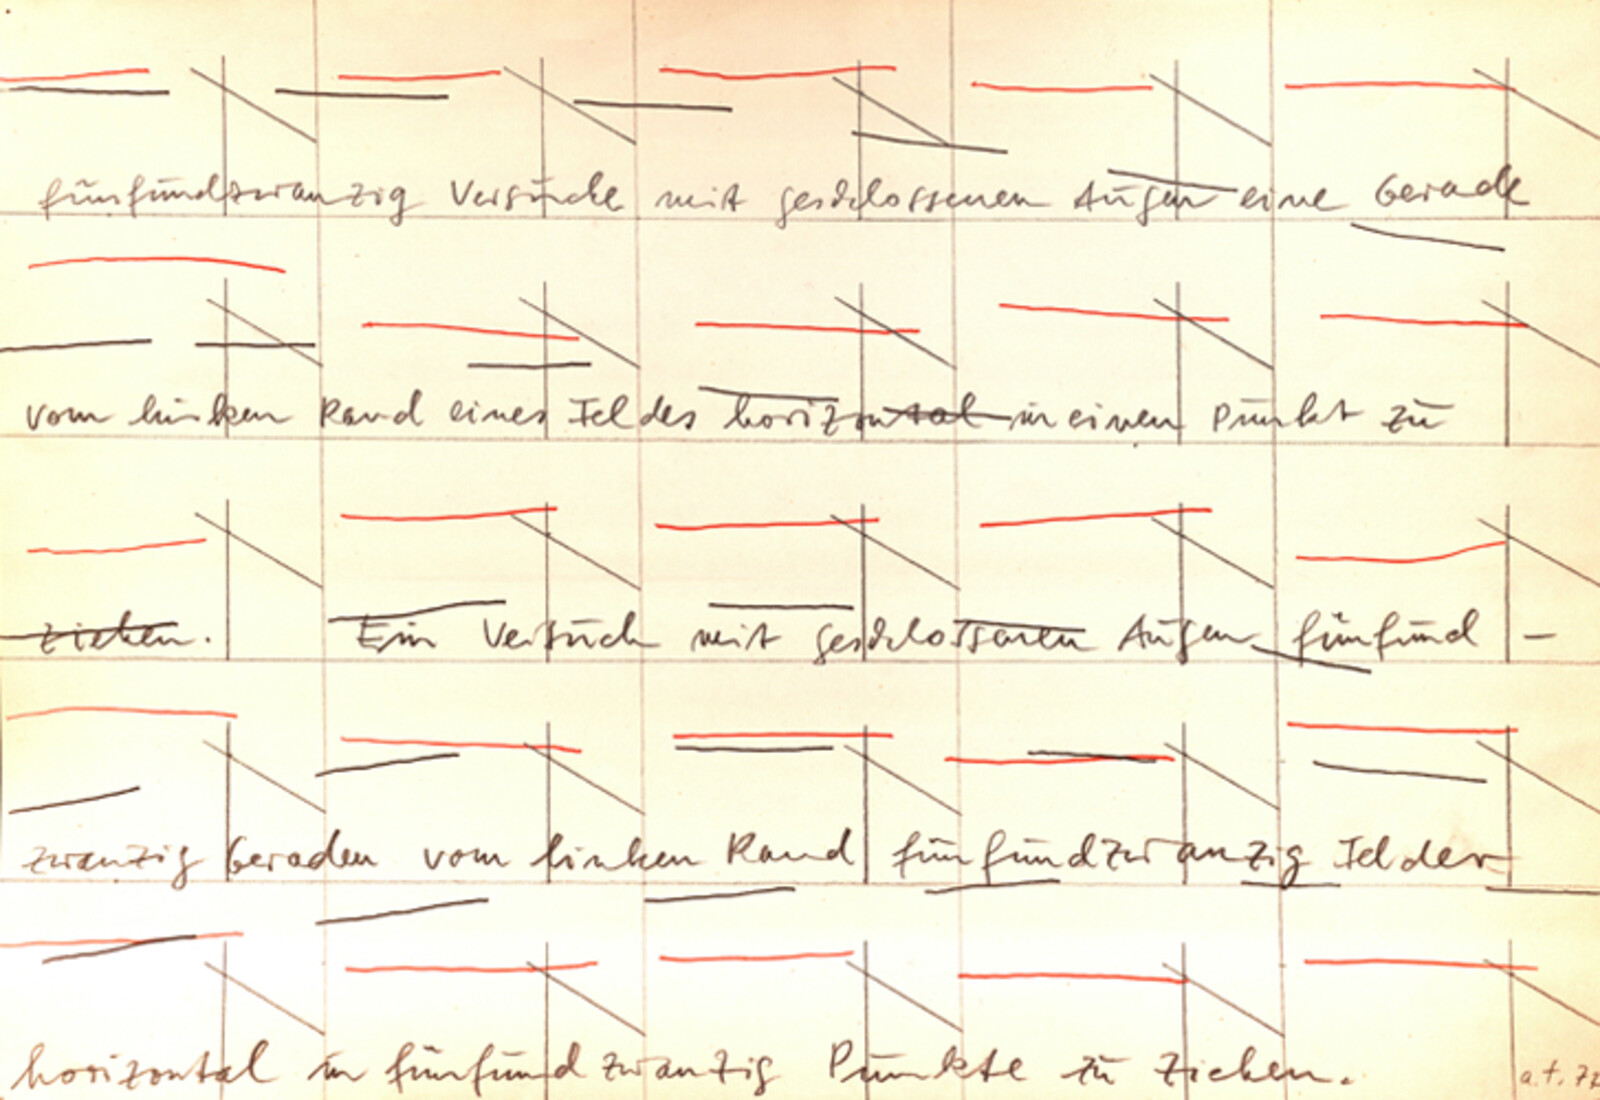 fünfundzwanzig Versuche mit geschlossenen Augen eine Gerade
vom linken Rand eines Feldes horizontal in einen Punkt zu
ziehen. Ein Versuch mit geschlossenen Augen fünfund-
zwanzig Geraden vom linken Rand fünfundzwanzig Felder
horizontal in fünfundzwanzig Punkte zu ziehen.
a.t.